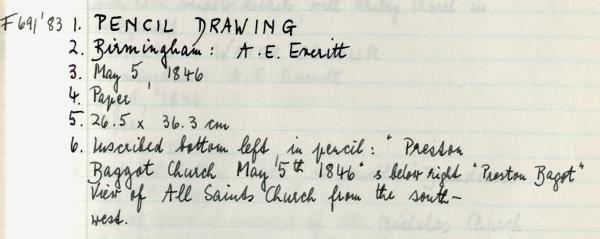 F691'83 1. PENCIL DRAWING
2. Birmingham: A. E. Everitt
3. May 5, 1846
4. Paper
5. 26.5 x 36.3 cm
6. Inscribed bottom left, in pencil: "Preston
Baggot Church May 5th 1846" s below right "Preston Bagot"
View of All Saints Church from the south-
west.